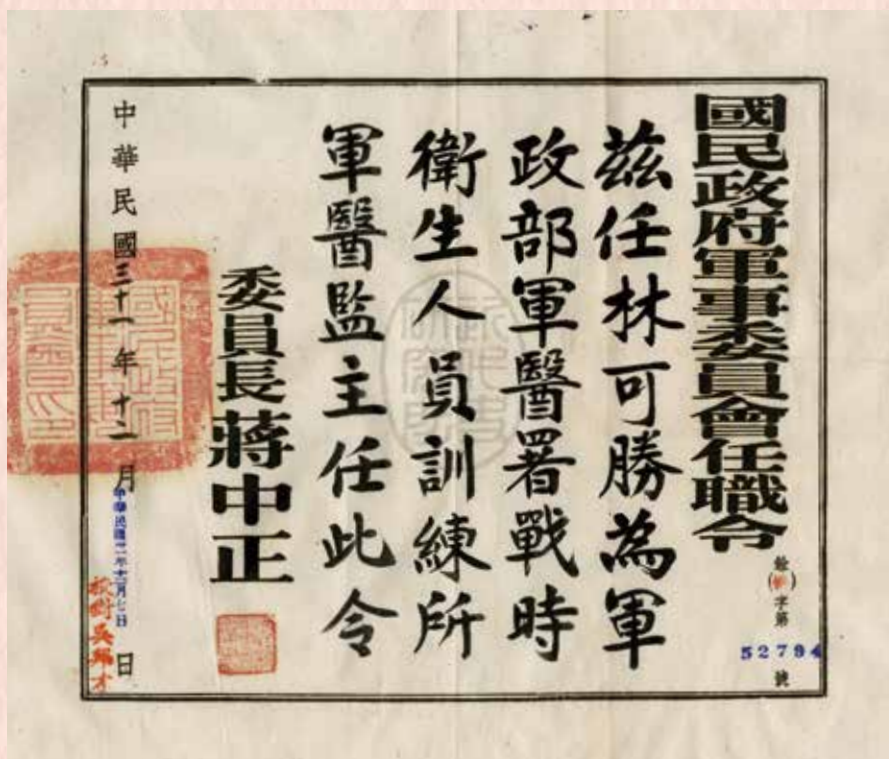 國民政府軍事委員會任職令
銓(
)字第
52794
號
茲任林可勝為軍
政部軍醫署戰時
衛生人員訓練所
軍醫監主任此令
委員長蔣中正
中華民國三十一年十二月
日
校對吳